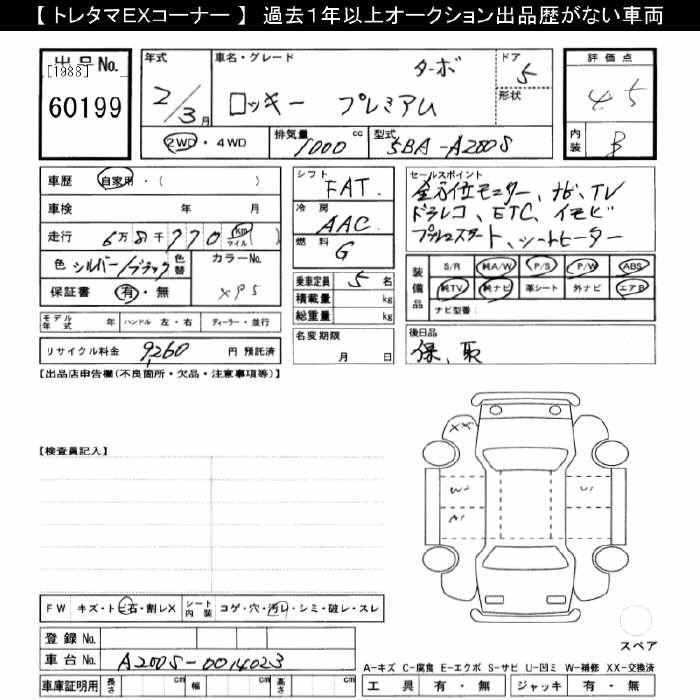 【 トレタマEXコーナー 】 過去1年以上オークション出品歴がない車両
出品No.
[1988]
60199
年式
2/3月
車名・グレード
ターボ
ロッキー プレミアム
ドア
5
形状
評価点
4.5
内装
B
2WD・4WD
排気量
1000 cc
型式
5BA-A200S
車歴 自家用・( )
車検 年 月
走行 6万8千770 km マイル ( )
色 シルバー/ブラック 色替
カラーNo.
XP5
保証書 有・無
モデル年式 年 ハンドル 左・右 ディーラー・並行
リサイクル料金 9,260 円 預託済
シフト
FAT.
冷房
AAC.
燃料
G
乗車定員 5 名
積載量 kg
総重量 kg
名変期限
月 日
セールスポイント
全方位モニター、ナビ、TV
ドラレコ、ETC、イモビ
プッシュスタート、シートヒーター
装備品
S/R 純A/W P/S P/W ABS
純TV 純ナビ 革シート 外ナビ エアB
ナビ型番:
後日品
保、取
【出品店申告欄(不良箇所・欠品・注意事項等)】
【検査員記入】
XX
W2
A1
U1
FW キズ・トビ石・割レX
シート内装 コゲ・穴・汚レ・シミ・破レ・スレ
登録 No.
車台 No. A200S-0014023
車庫証明用 長さ cm 幅 cm 高さ cm
スペア
A-キズ C-腐食 E-エクボ S-サビ U-凹ミ W-補修 XX-交換済
工具 有・無 ジャッキ 有・無